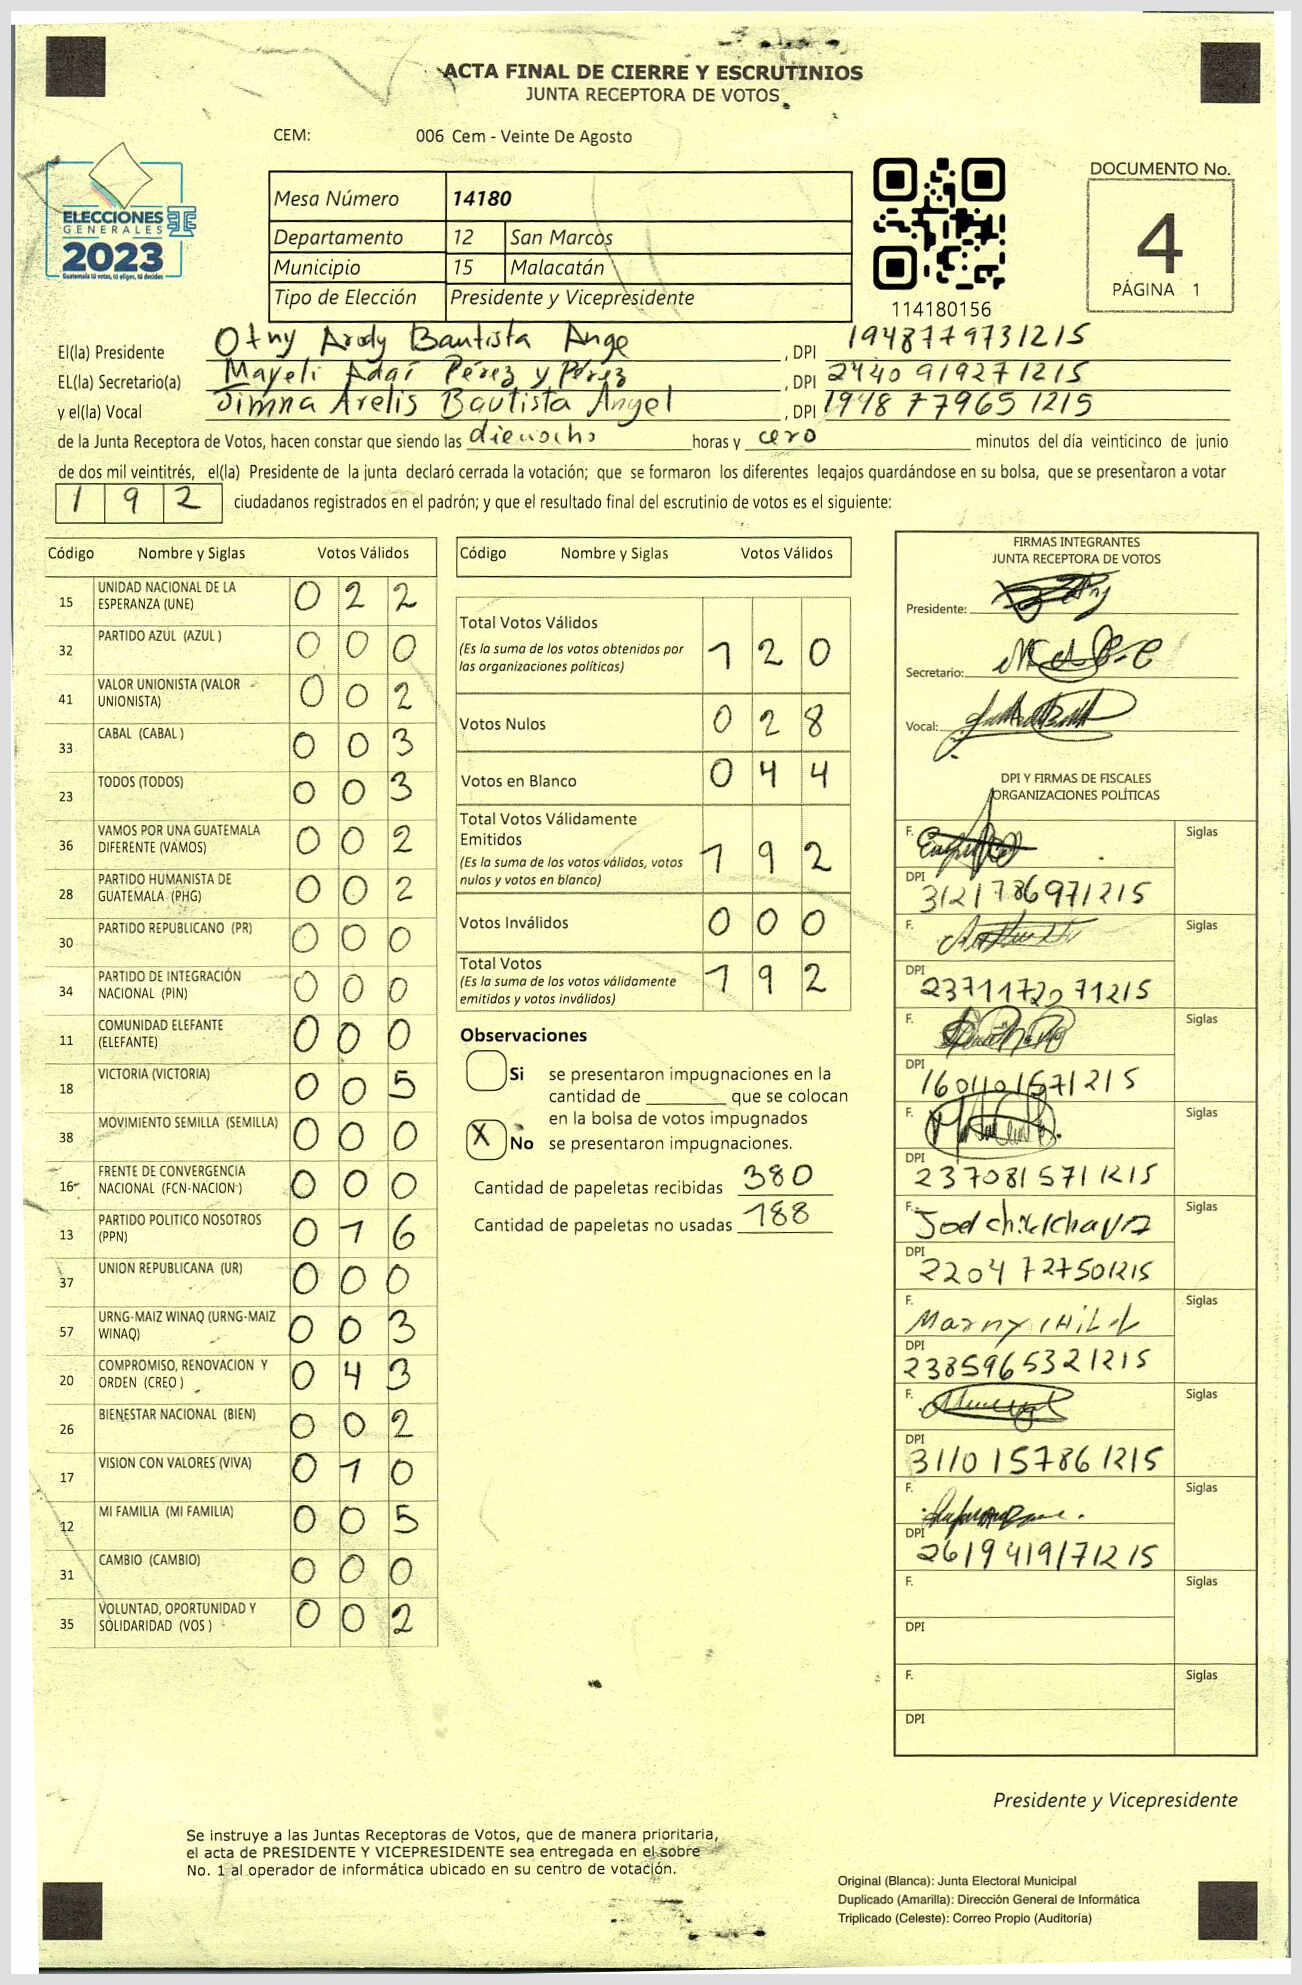 ACTA FINAL DE CIERRE Y ESCRUTINIOS
JUNTA RECEPTORA DE VOTOS
CEM: 006 Cem - Veinte De Agosto
ELECCIONES
GENERALES
2023
Guatemala tú votas, tú eliges, tú decides
Mesa Número 14180
Departamento 12 San Marcos
Municipio 15 Malacatán
Tipo de Elección Presidente y Vicepresidente
114180156
DOCUMENTO No.
4
PÁGINA 1
El(la) Presidente Otny Arody Bautista Ange , DPI 1948779731215
EL(la) Secretario(a) Mayeli Adaí Pérez y Pérez , DPI 2440919271215
y el(la) Vocal Jimna Arelis Bautista Angel , DPI 1948779651215
de la Junta Receptora de Votos, hacen constar que siendo las dieciocho horas y cero minutos del día veinticinco de junio
de dos mil veintitrés, el(la) Presidente de la junta declaró cerrada la votación; que se formaron los diferentes legajos guardándose en su bolsa, que se presentaron a votar
192 ciudadanos registrados en el padrón; y que el resultado final del escrutinio de votos es el siguiente:
Código Nombre y Siglas Votos Válidos
15 UNIDAD NACIONAL DE LA ESPERANZA (UNE) 022
32 PARTIDO AZUL (AZUL ) 000
41 VALOR UNIONISTA (VALOR UNIONISTA) 002
33 CABAL (CABAL ) 003
23 TODOS (TODOS) 003
36 VAMOS POR UNA GUATEMALA DIFERENTE (VAMOS) 002
28 PARTIDO HUMANISTA DE GUATEMALA (PHG) 002
30 PARTIDO REPUBLICANO (PR) 000
34 PARTIDO DE INTEGRACIÓN NACIONAL (PIN) 000
11 COMUNIDAD ELEFANTE (ELEFANTE) 000
18 VICTORIA (VICTORIA) 005
38 MOVIMIENTO SEMILLA (SEMILLA) 000
16 FRENTE DE CONVERGENCIA NACIONAL (FCN-NACION ) 000
13 PARTIDO POLITICO NOSOTROS (PPN) 016
37 UNION REPUBLICANA (UR) 000
57 URNG-MAIZ WINAQ (URNG-MAIZ WINAQ) 003
20 COMPROMISO, RENOVACION Y ORDEN (CREO ) 043
26 BIENESTAR NACIONAL (BIEN) 002
17 VISION CON VALORES (VIVA) 010
12 MI FAMILIA (MI FAMILIA) 005
31 CAMBIO (CAMBIO) 000
35 VOLUNTAD, OPORTUNIDAD Y SOLIDARIDAD (VOS ) 002
Código Nombre y Siglas Votos Válidos
Total Votos Válidos
(Es la suma de los votos obtenidos por
las organizaciones políticas) 120
Votos Nulos 028
Votos en Blanco 044
Total Votos Válidamente
Emitidos
(Es la suma de los votos válidos, votos
nulos y votos en blanco) 192
Votos Inválidos 000
Total Votos
(Es la suma de los votos válidamente
emitidos y votos inválidos) 192
Observaciones
Si se presentaron impugnaciones en la
cantidad de ________ que se colocan
en la bolsa de votos impugnados
X No se presentaron impugnaciones.
Cantidad de papeletas recibidas 380
Cantidad de papeletas no usadas 188
FIRMAS INTEGRANTES
JUNTA RECEPTORA DE VOTOS
Presidente:
Secretario:
Vocal:
DPI Y FIRMAS DE FISCALES
ORGANIZACIONES POLÍTICAS
F. Siglas
DPI 3121786971215
F. Siglas
DPI 2371172071215
F. Siglas
DPI 1601101571215
F. Siglas
DPI 2370815711215
F. Siglas
DPI 2204727501215
F. Siglas
DPI 2385965321215
F. Siglas
DPI 3110157861215
F. Siglas
DPI 2619419171215
F. Siglas
DPI
F. Siglas
DPI
Presidente y Vicepresidente
Se instruye a las Juntas Receptoras de Votos, que de manera prioritaria,
el acta de PRESIDENTE Y VICEPRESIDENTE sea entregada en el sobre
No. 1 al operador de informática ubicado en su centro de votación.
Original (Blanca): Junta Electoral Municipal
Duplicado (Amarilla): Dirección General de Informática
Triplicado (Celeste): Correo Propio (Auditoría)